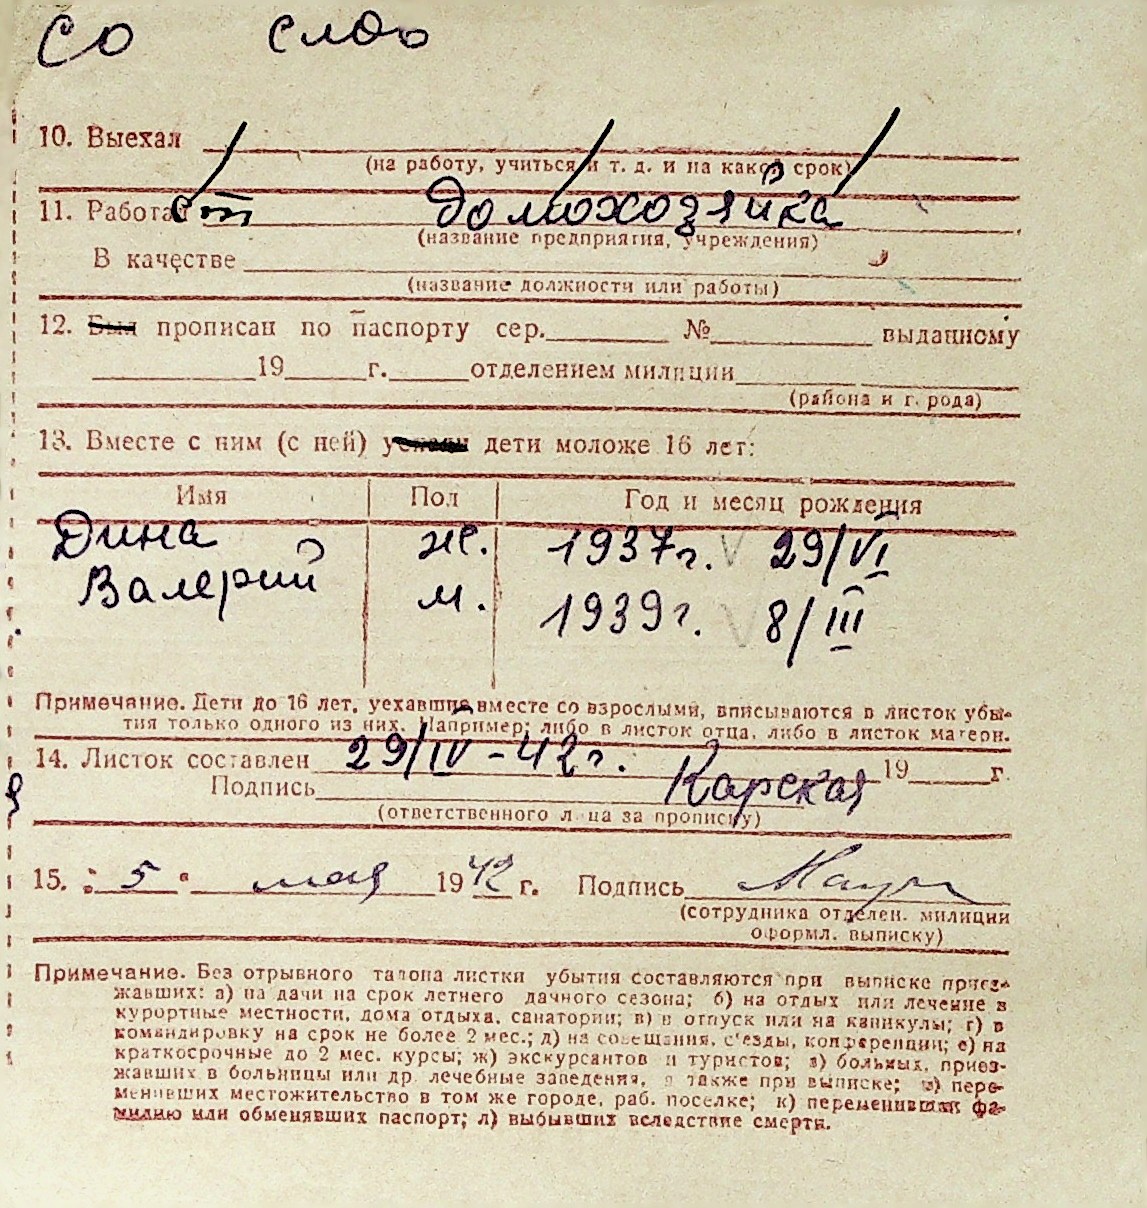 со слов
10. Выехал
(на работу, учиться и т. д. и на какой срок)
11. Работает домохозяйка
(название предприятия, учреждения)
В качестве
(название должности или работы)
12. Был прописан по паспорту сер. № выданному
19 г. отделением милиции
(района и г. рода)
13. Вместе с ним (с ней) дети моложе 16 лет:
Имя Пол Год и месяц рождения
Дина ж. 1937г. V 29/VI
Валерий м. 1939г. V 8/III
Примечание. Дети до 16 лет, уехавшие вместе со взрослыми, вписываются в листок убы-
тия только одного из них. Например; либо в листок отца, либо в листок матери.
14. Листок составлен 29/IV-42г. 19 г.
Подпись Карская
(ответственного лица за прописку)
15. "5" мая 1942 г. Подпись
(сотрудника отделен. милиции
оформл. выписку)
Примечание. Без отрывного талона листки убытия составляются при выписке приез-
жавших: а) на дачи на срок летнего дачного сезона; б) на отдых или лечение в
курортные местности, дома отдыха, санатории; в) в отпуск или на каникулы; г) в
командировку на срок не более 2 мес.; д) на совещания, с'езды, конференции; е) на
краткосрочные до 2 мес. курсы; ж) экскурсантов и туристов; з) больных, приез-
жавших в больницы или др. лечебные заведения, а также при выписке; и) пере-
менивших местожительство в том же городе, раб. поселке; к) переменивших фа-
милию или обменявших паспорт; л) выбывших вследствие смерти.